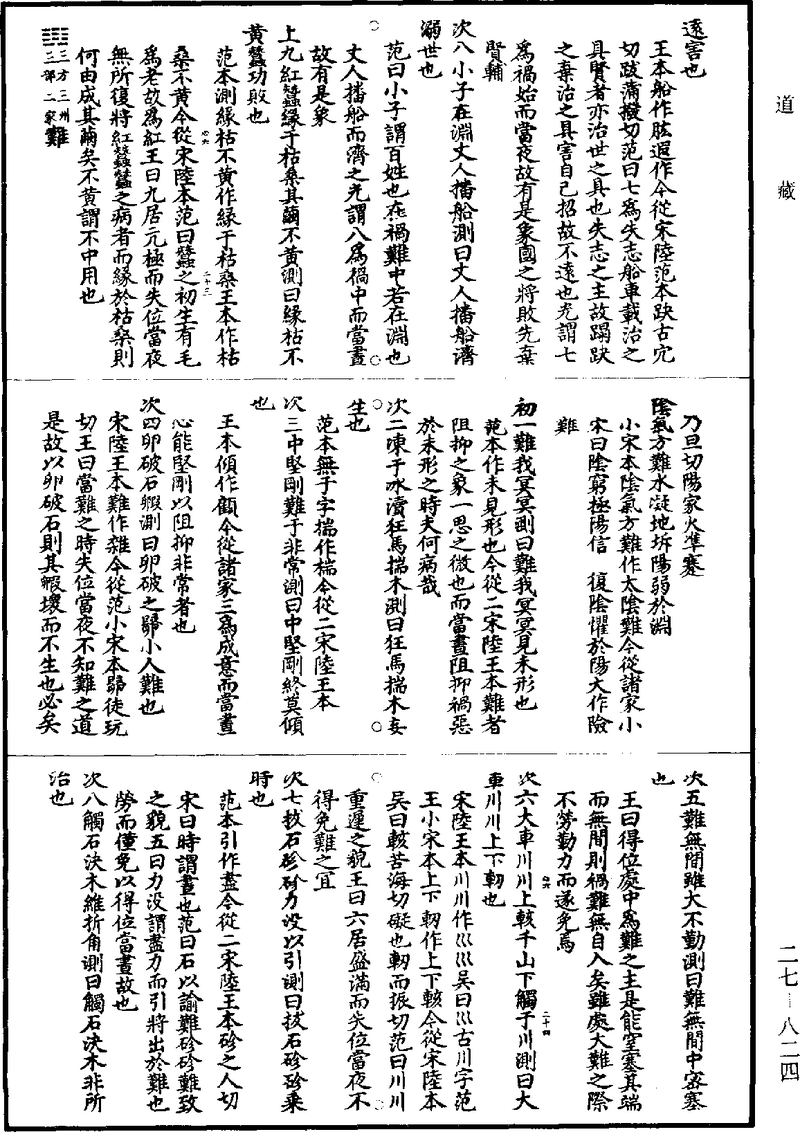 道藏
遠害也
王本船作肱遐作今從宋陸范本趹古穴
切跋蒲撥切范曰七為失志船車載治之
具賢者亦治世之具也失志之主故蹋趹
之棄治之具害自己招故不遠也光謂七
為禍始而當夜故有是象國之將敗先棄
賢輔
次八小子在淵丈人播船測曰丈人播船濟
溺世也
范曰小子謂百姓也在禍難中若在淵也
丈人播船而濟之光謂八為禍中而當晝
故有是象
上九紅蠶緣于枯桑其繭不黃測曰緣枯不
黃蠶功敗也
范本測緣枯不黃作緣于枯桑王本作枯
桑不黃今從宋陸本范曰蠶之初生有毛
為老故為紅王曰九居元極而失位當夜
無所復將紅蠶蠶之病者而緣於枯桑則
何由成其繭矣不黃謂不中用也
三方三州
三部二家
難
乃旦切陽家火準蹇
陰氣方難水凝地坼陽弱於淵
小宋本陰氣方難作太陰難今從諸家小
宋曰陰窮極陽信 復陰懼於陽大作險
難
初一難我冥冥測曰難我冥冥見未形也
范本作未見形也今從二宋陸王本難者
阻抑之象一思之微也而當晝阻抑禍惡
於未形之時夫何病哉
次二凍于冰瀆狂馬揣木測曰狂馬揣木妄
生也
范本無于字揣作椯今從二宋陸王本
次三中堅剛難于非常測曰中堅剛終莫傾
也
王本傾作顧今從諸家三為成意而當晝
心能堅剛以阻抑非常者也
次四卵破石毈測曰卵破之毈小人難也
宋陸王本難作雜今從范小宋本毈徒玩
切王曰當難之時失位當夜不知難之道
是故以卵破石則其毈壞而不生也必矣
次五難無間雖大不勤測曰難無間中密塞
也
王曰得位處中為難之主是能窒塞其端
而無間則禍難無自入矣雖處大難之際
不勞勤力而遂免焉
次六大車川川上輆于山下觸于川測曰大
車川川上下軔也
宋陸王本川川作巛巛吳曰巛古川字范
王小宋本上下軔作上下輆今從宋陸本
吳曰輆苦海切礙也軔而振切范曰川川
重遲之貌王曰六居盛滿而失位當夜不
得免難之宜
次七拔石砛砛力沒以引測曰拔石砛砛乘
時也
范本引作盡今從二宋陸王本砛之人切
宋曰時謂晝也范曰石以諭難砛砛難致
之貌五曰力沒謂盡力而引將出於難也
勞而僅免以得位當晝故也
次八觸石決木維折角測曰觸石決木非所
治也
二七—八二四